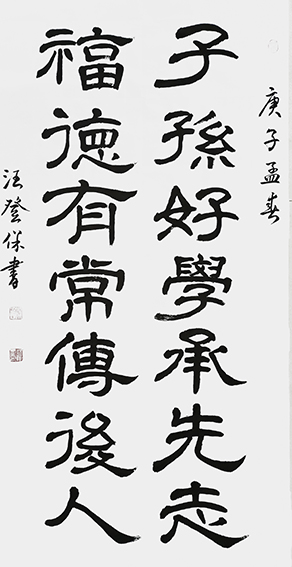 庚子孟春
子孫好學承先志
福德有常傳後人
汪登保書